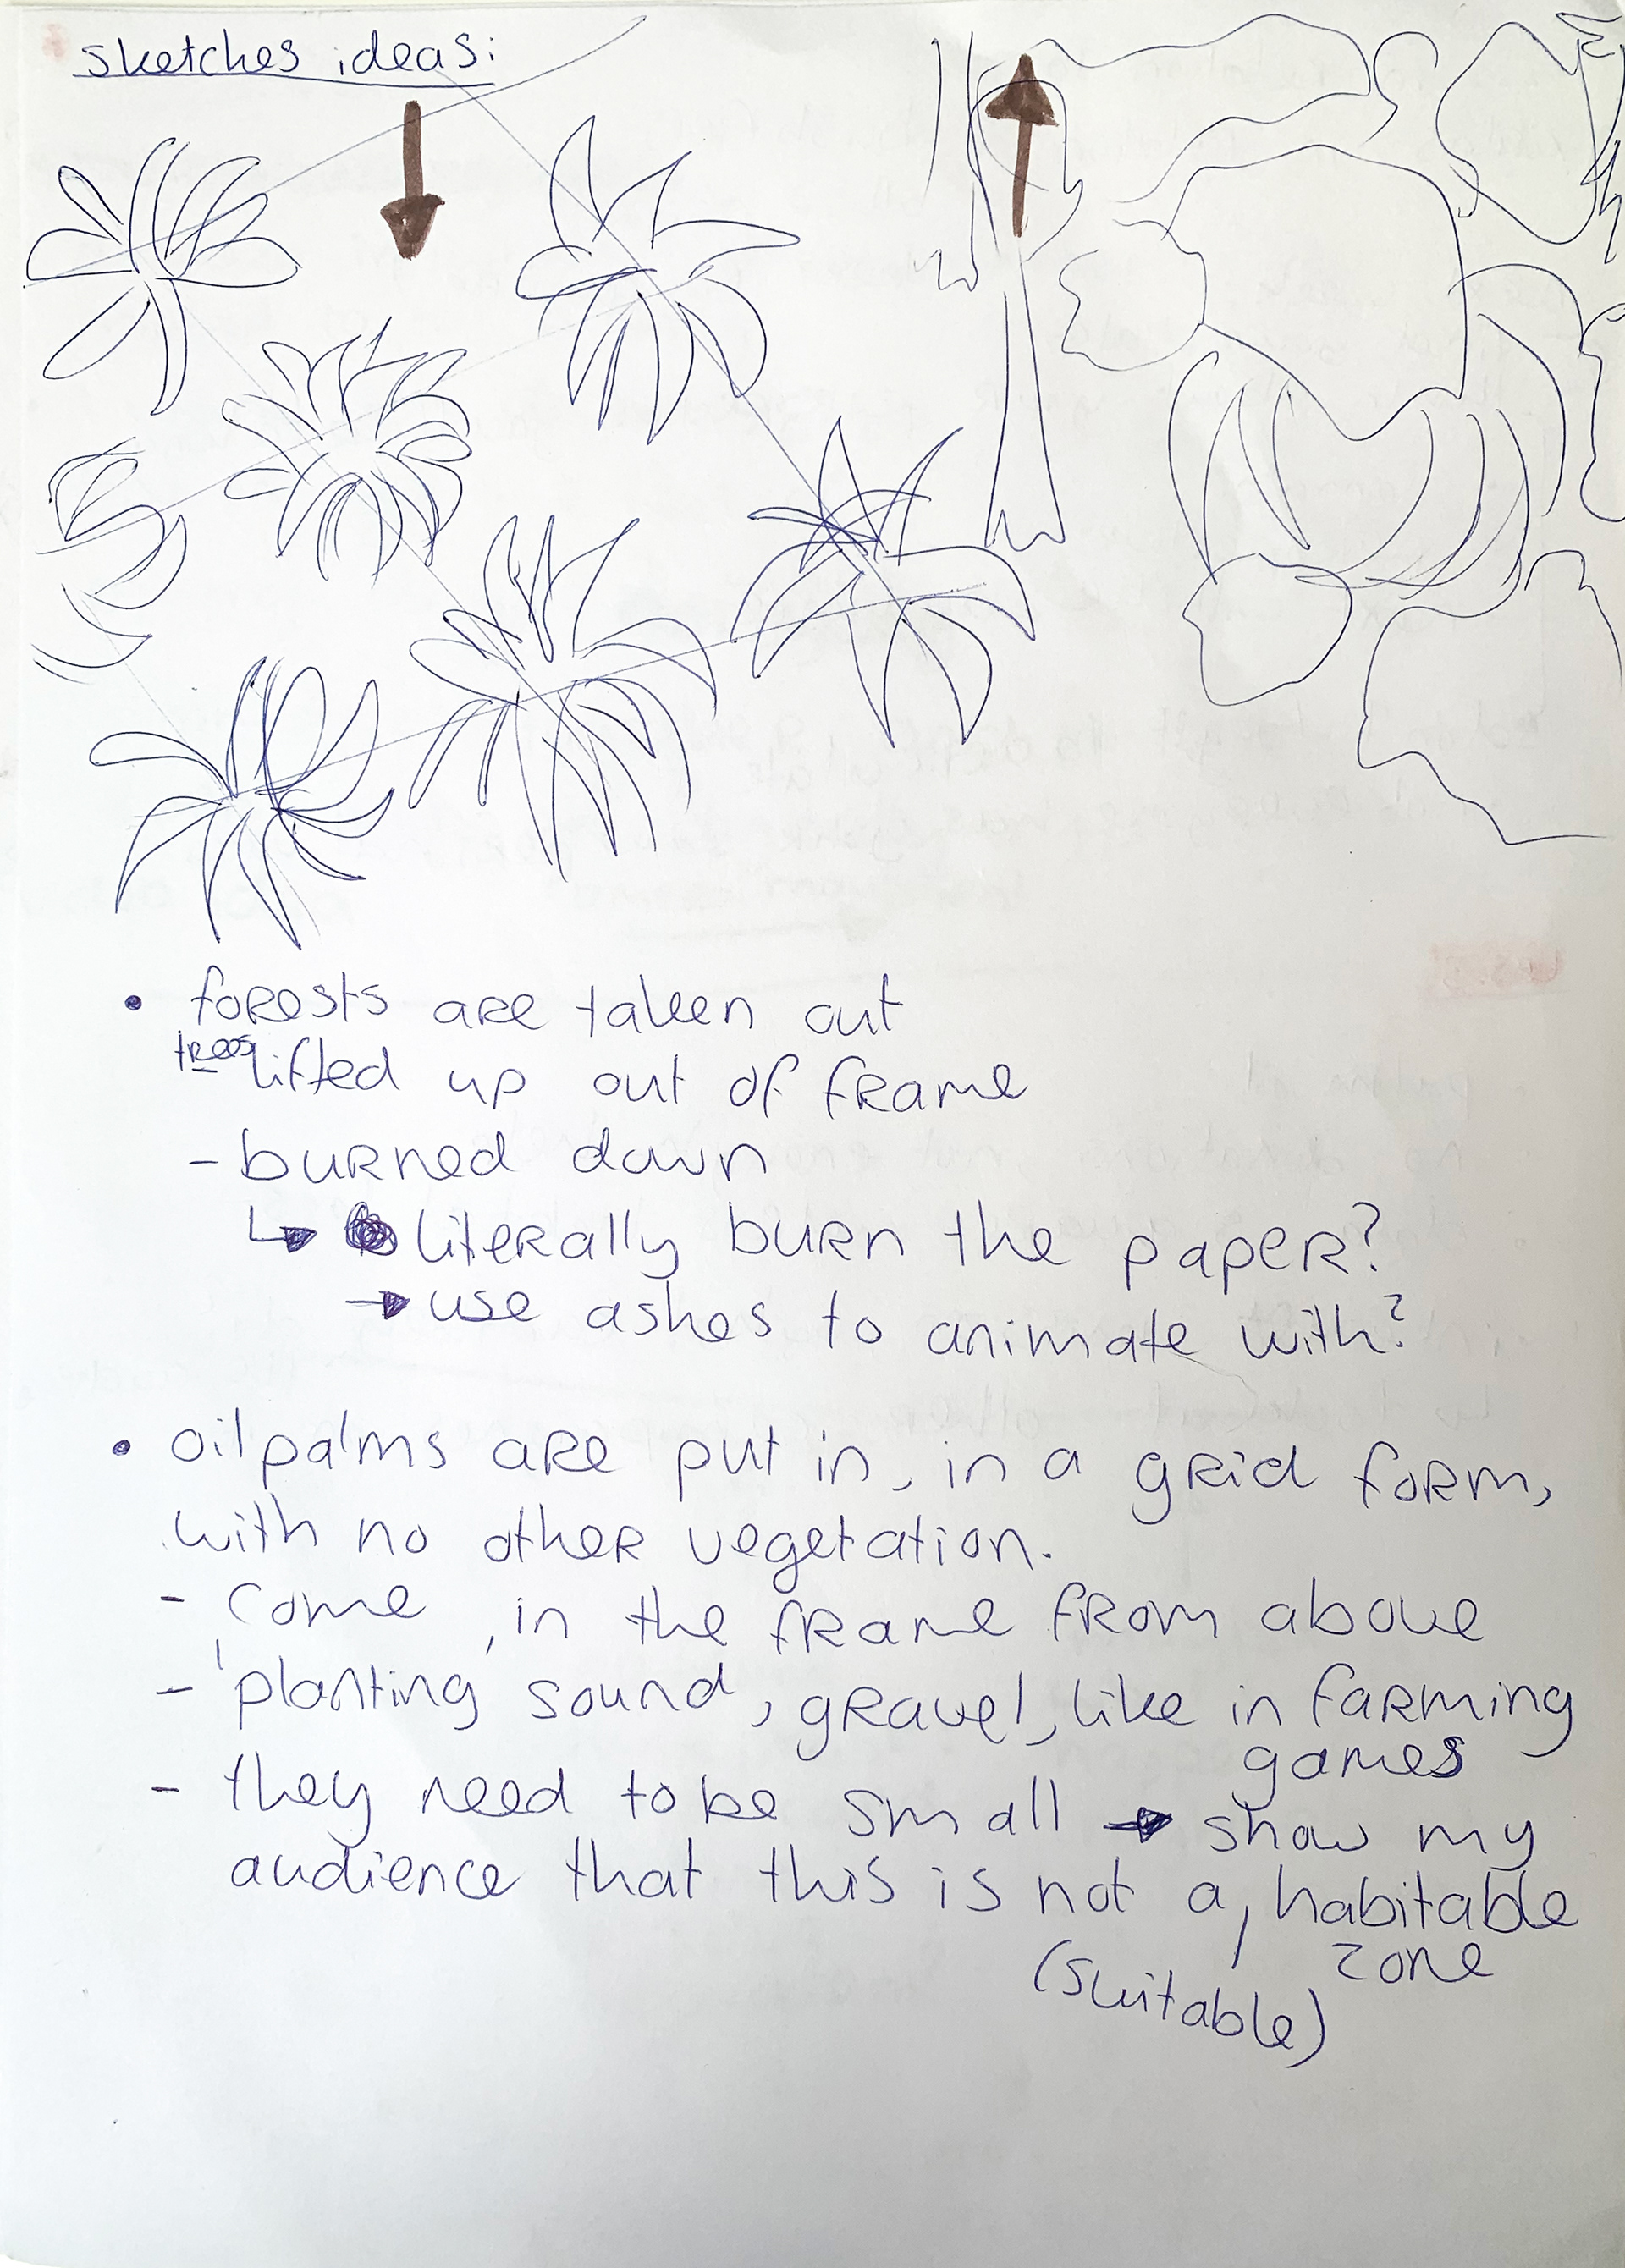 sketches ideas:
• forests are taken out
trees lifted up out of frame
- burned down
↳ literally burn the paper?
→ use ashes to animate with?
• oil palms are put in, in a grid form,
with no other vegetation.
- come in the frame from above
- 'planting sound, gravel, like in farming
games
- they need to be small → show my
audience that this is not a, habitable
zone
(suitable)